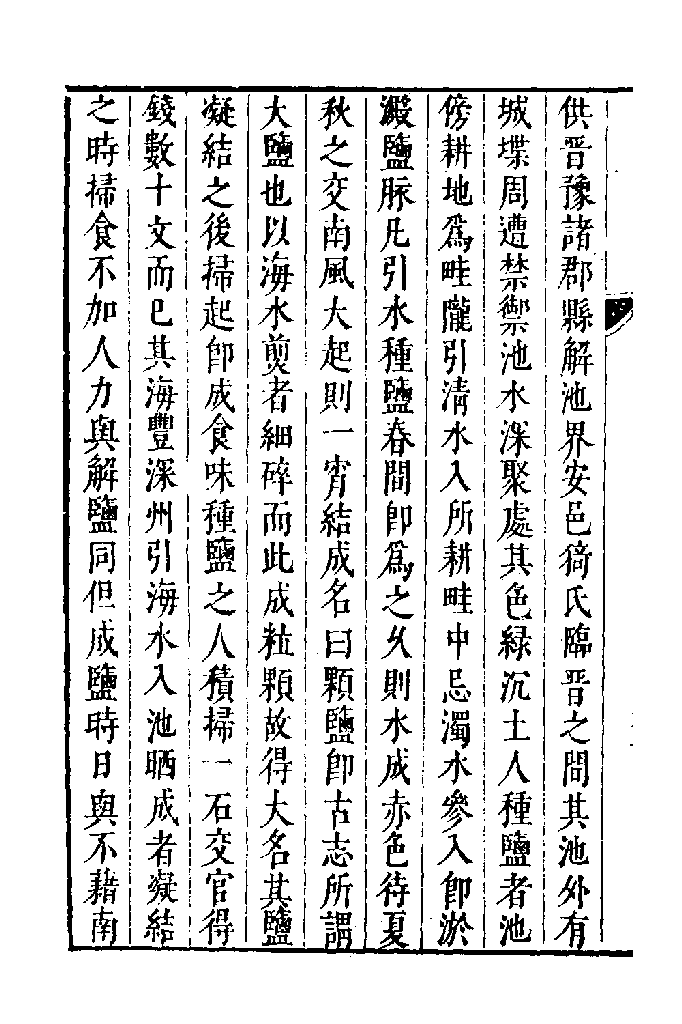 供晋豫諸郡縣解池界安邑猗氏臨晋之間其池外有
城堞周遭禁禦池水深聚處其色綠沉土人種鹽者池
傍耕地爲畦隴引清水入所耕畦中忌濁水參入卽淤
澱鹽脉凡引水種鹽春間卽爲之久則水成赤色待夏
秋之交南風大起則一宵結成名曰顆鹽卽古志所謂
大鹽也以海水煎者細碎而此成粒顆故得大名其鹽
凝結之後掃起卽成食味種鹽之人積掃一石交官得
錢數十文而已其海豐深州引海水入池晒成者凝結
之時掃食不加人力與解鹽同但成鹽時日與不藉南